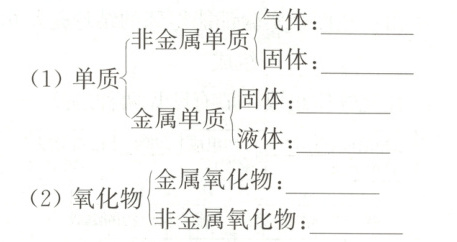 (1) 单质
非金属单质
气体:
固体:
金属单质
固体:
液体:
(2) 氧化物
金属氧化物:
非金属氧化物: